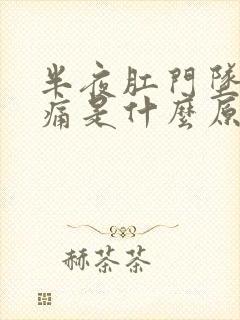 半夜肛門墜
痛是什麼原
赫茶茶